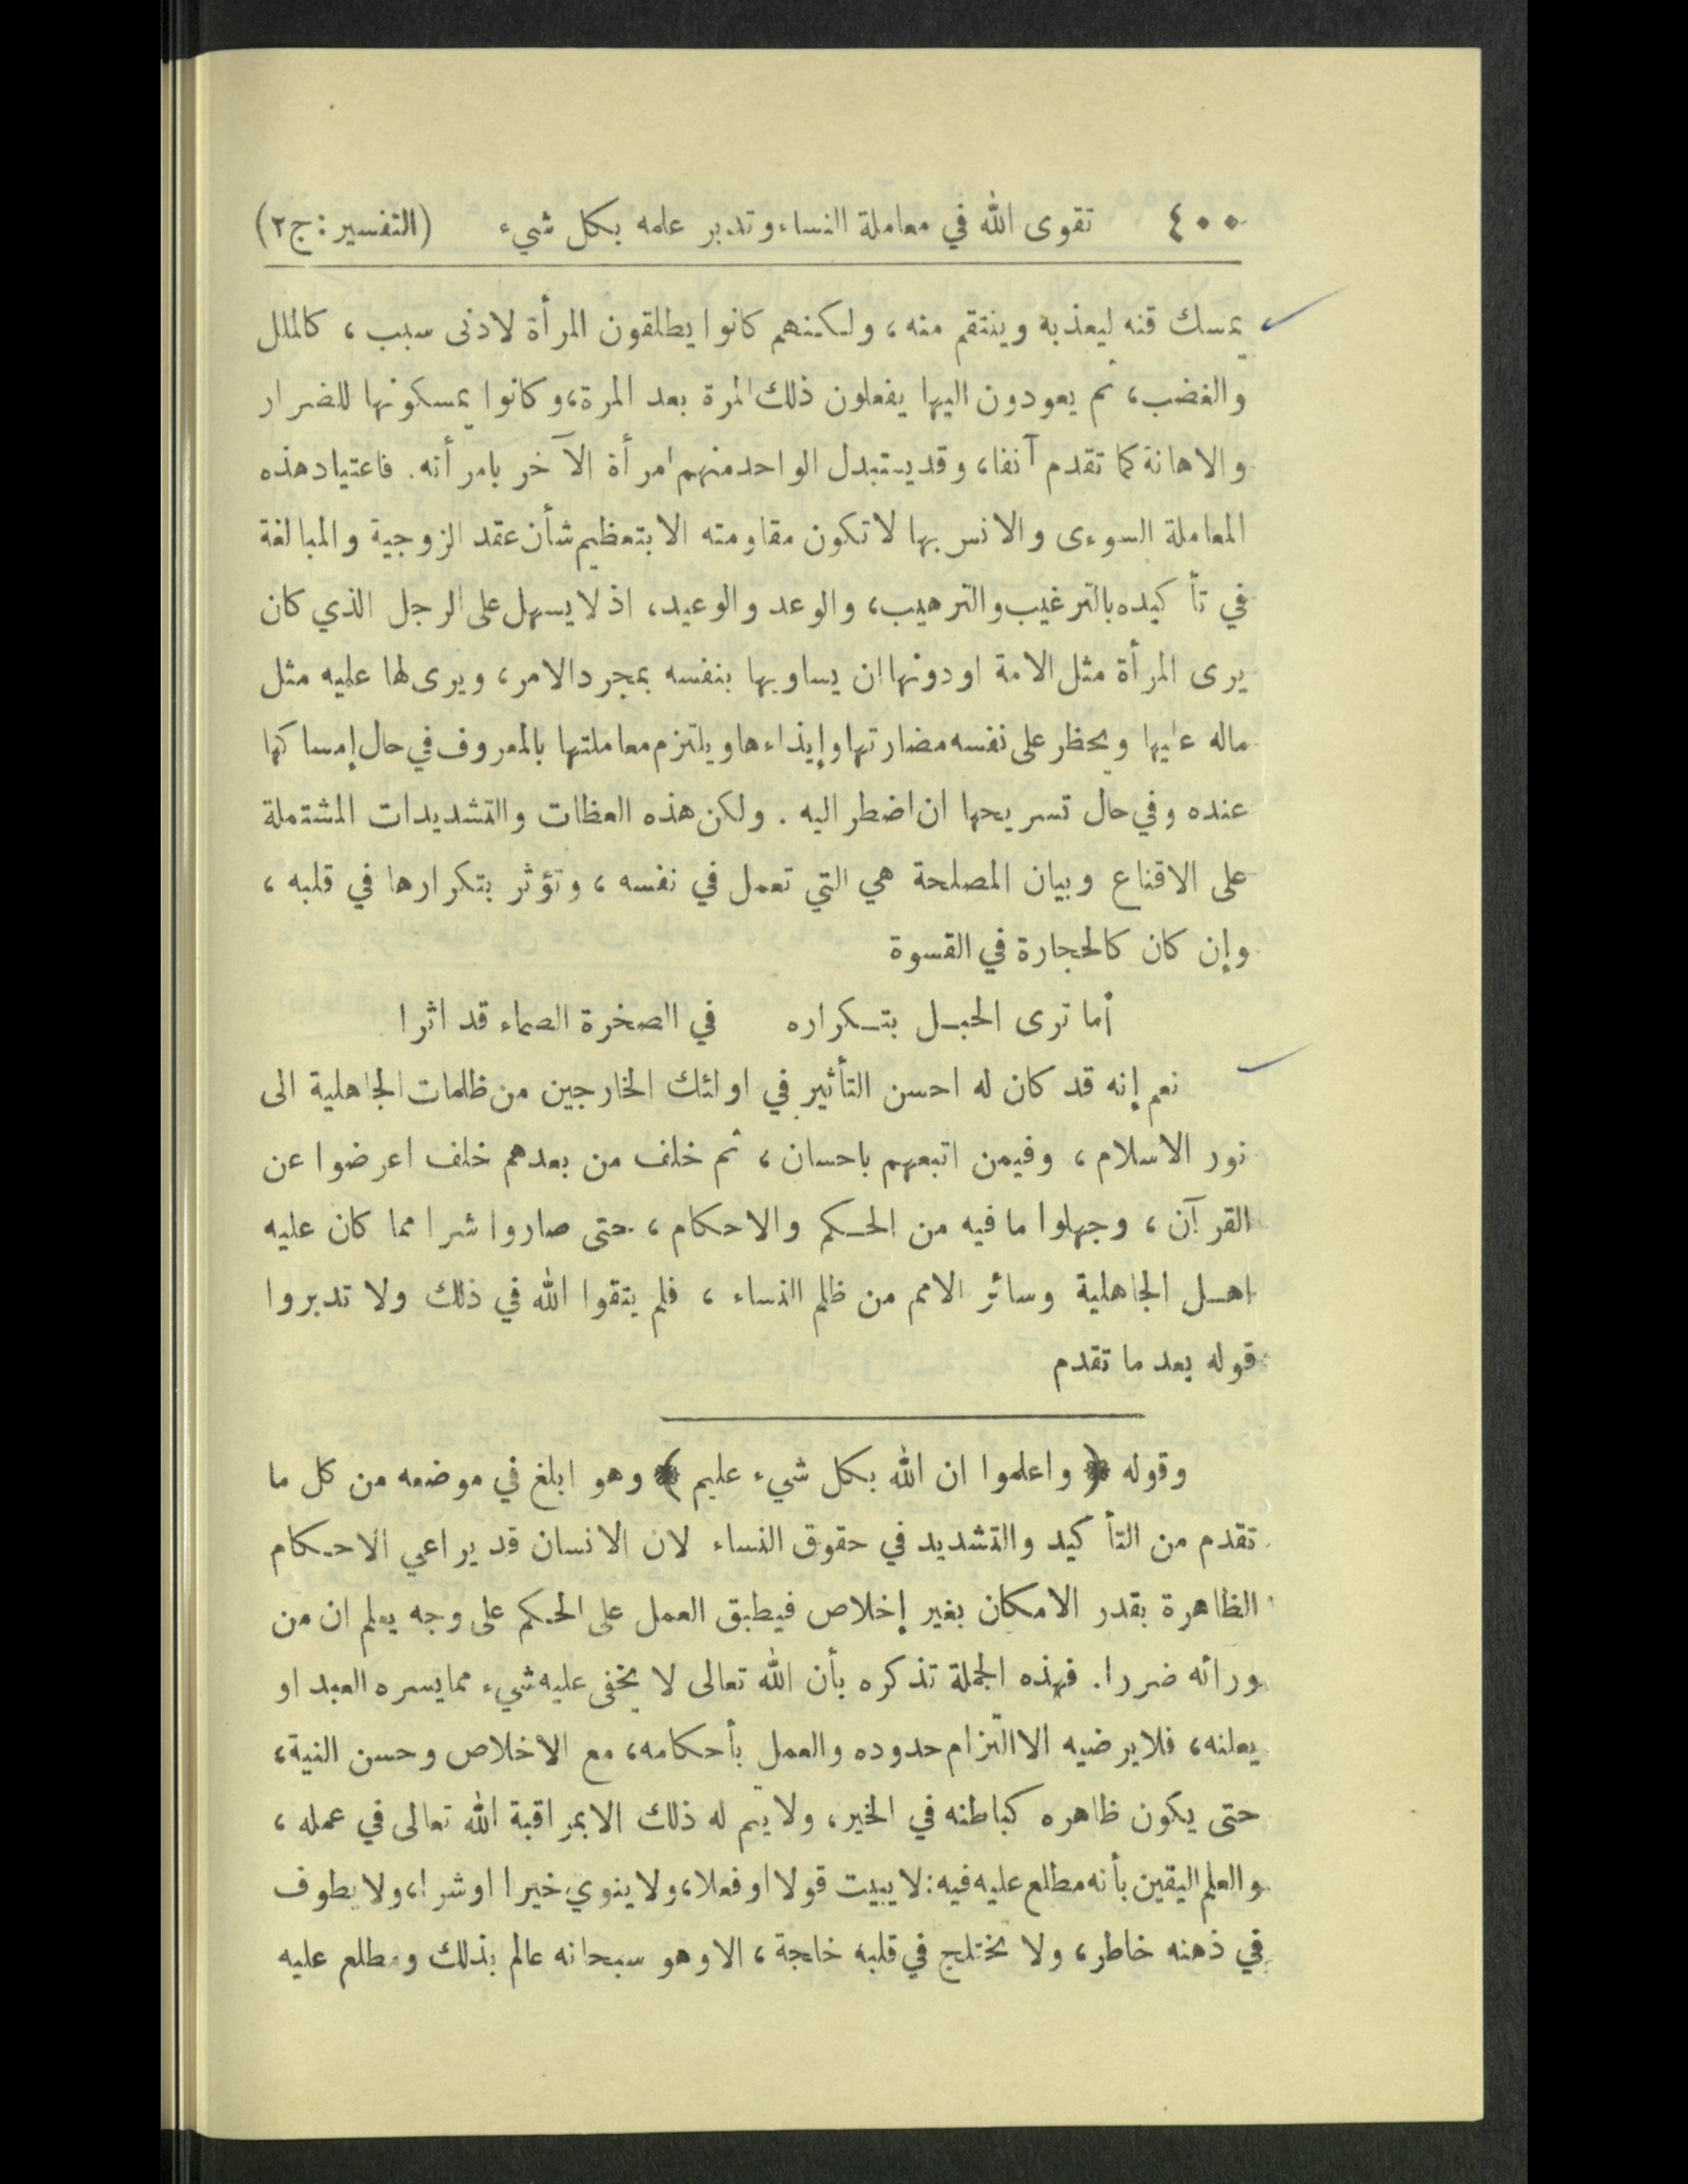 ٤٠٠ تقوى الله في معاملة النساء وتدبر علمه بكل شيء (التفسير : ج ٢)
يمسك قنه ليعذبه وينتقم منه ، ولكنهم كانوا يطلقون المرأة لادنى سبب ، كالملل
والغضب ، ثم يعودون اليها يفعلون ذلك المرة بعد المرة ، وكانوا يمسكونها للضرار
والاهانة كما تقدم آنفا ، وقد يستبدل الواحد منهم امرأة الآخر بامرأته . فاعتياد هذه
المعاملة السوءى والانس بها لا تكون مقاومته الا بتعظيم شأن عقد الزوجية والمبالغة
في تأكيده بالترغيب والترهيب ، والوعد والوعيد ، اذ لا يسهل على الرجل الذي كان
يرى المرأة مثل الامة او دونها ان يساويها بنفسه بمجرد الامر ، ويرى لها عليه مثل
ماله عليها ويحظر على نفسه مضارتها وإيذاءها ويلتزم معاملتها بالمعروف في حال إمساكها
عنده وفي حال تسريحها ان اضطر اليه . ولكن هذه العظات والتشديدات المشتملة
على الاقناع وبيان المصلحة هي التي تعمل في نفسه ، وتؤثر بتكرارها في قلبه ،
وإن كان كالحجارة في القسوة
أما ترى الحبل بتكراره في الصخرة الصماء قد اثرا
نعم إنه قد كان له احسن التأثير في اولئك الخارجين من ظلمات الجاهلية الى
نور الاسلام ، وفيمن اتبعهم باحسان ، ثم خلف من بعدهم خلف اعرضوا عن
القرآن ، وجهلوا ما فيه من الحكم والاحكام ، حتى صاروا شرا مما كان عليه
اهل الجاهلية وسائر الامم من ظلم النساء ، فلم يتقوا الله في ذلك ولا تدبروا
قوله بعد ما تقدم
وقوله ﴿ واعلموا ان الله بكل شيء عليم ﴾ وهو ابلغ في موضعه من كل ما
تقدم من التأكيد والتشديد في حقوق النساء لان الانسان قد يراعي الاحكام
الظاهرة بقدر الامكان بغير إخلاص فيطبق العمل على الحكم على وجه يعلم ان من
ورائه ضررا . فهذه الجملة تذكره بأن الله تعالى لا يخفى عليه شيء مما يسره العبد او
يعلنه ، فلا يرضيه الا التزام حدوده والعمل بأحكامه ، مع الاخلاص وحسن النية ،
حتى يكون ظاهره كباطنه في الخير ، ولا يتم له ذلك الا بمراقبة الله تعالى في عمله ،
والعلم اليقين بأنه مطلع عليه فيه : لا يبيت قولا او فعلا ، ولا ينوي خيرا او شرا ، ولا يطوف
في ذهنه خاطر ، ولا تختلج في قلبه خالجة ، الا وهو سبحانه عالم بذلك ومطلع عليه